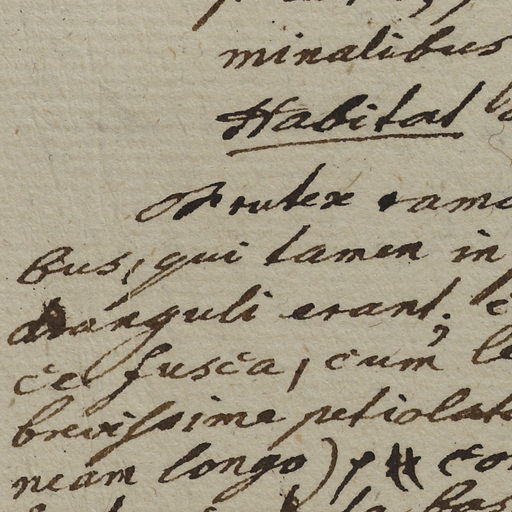 minalibus
Habitat
Frutex ramo
bus, qui tamen in
dránguli erant.
ce fusca, cum le
brevissime petiolat
neam longo)